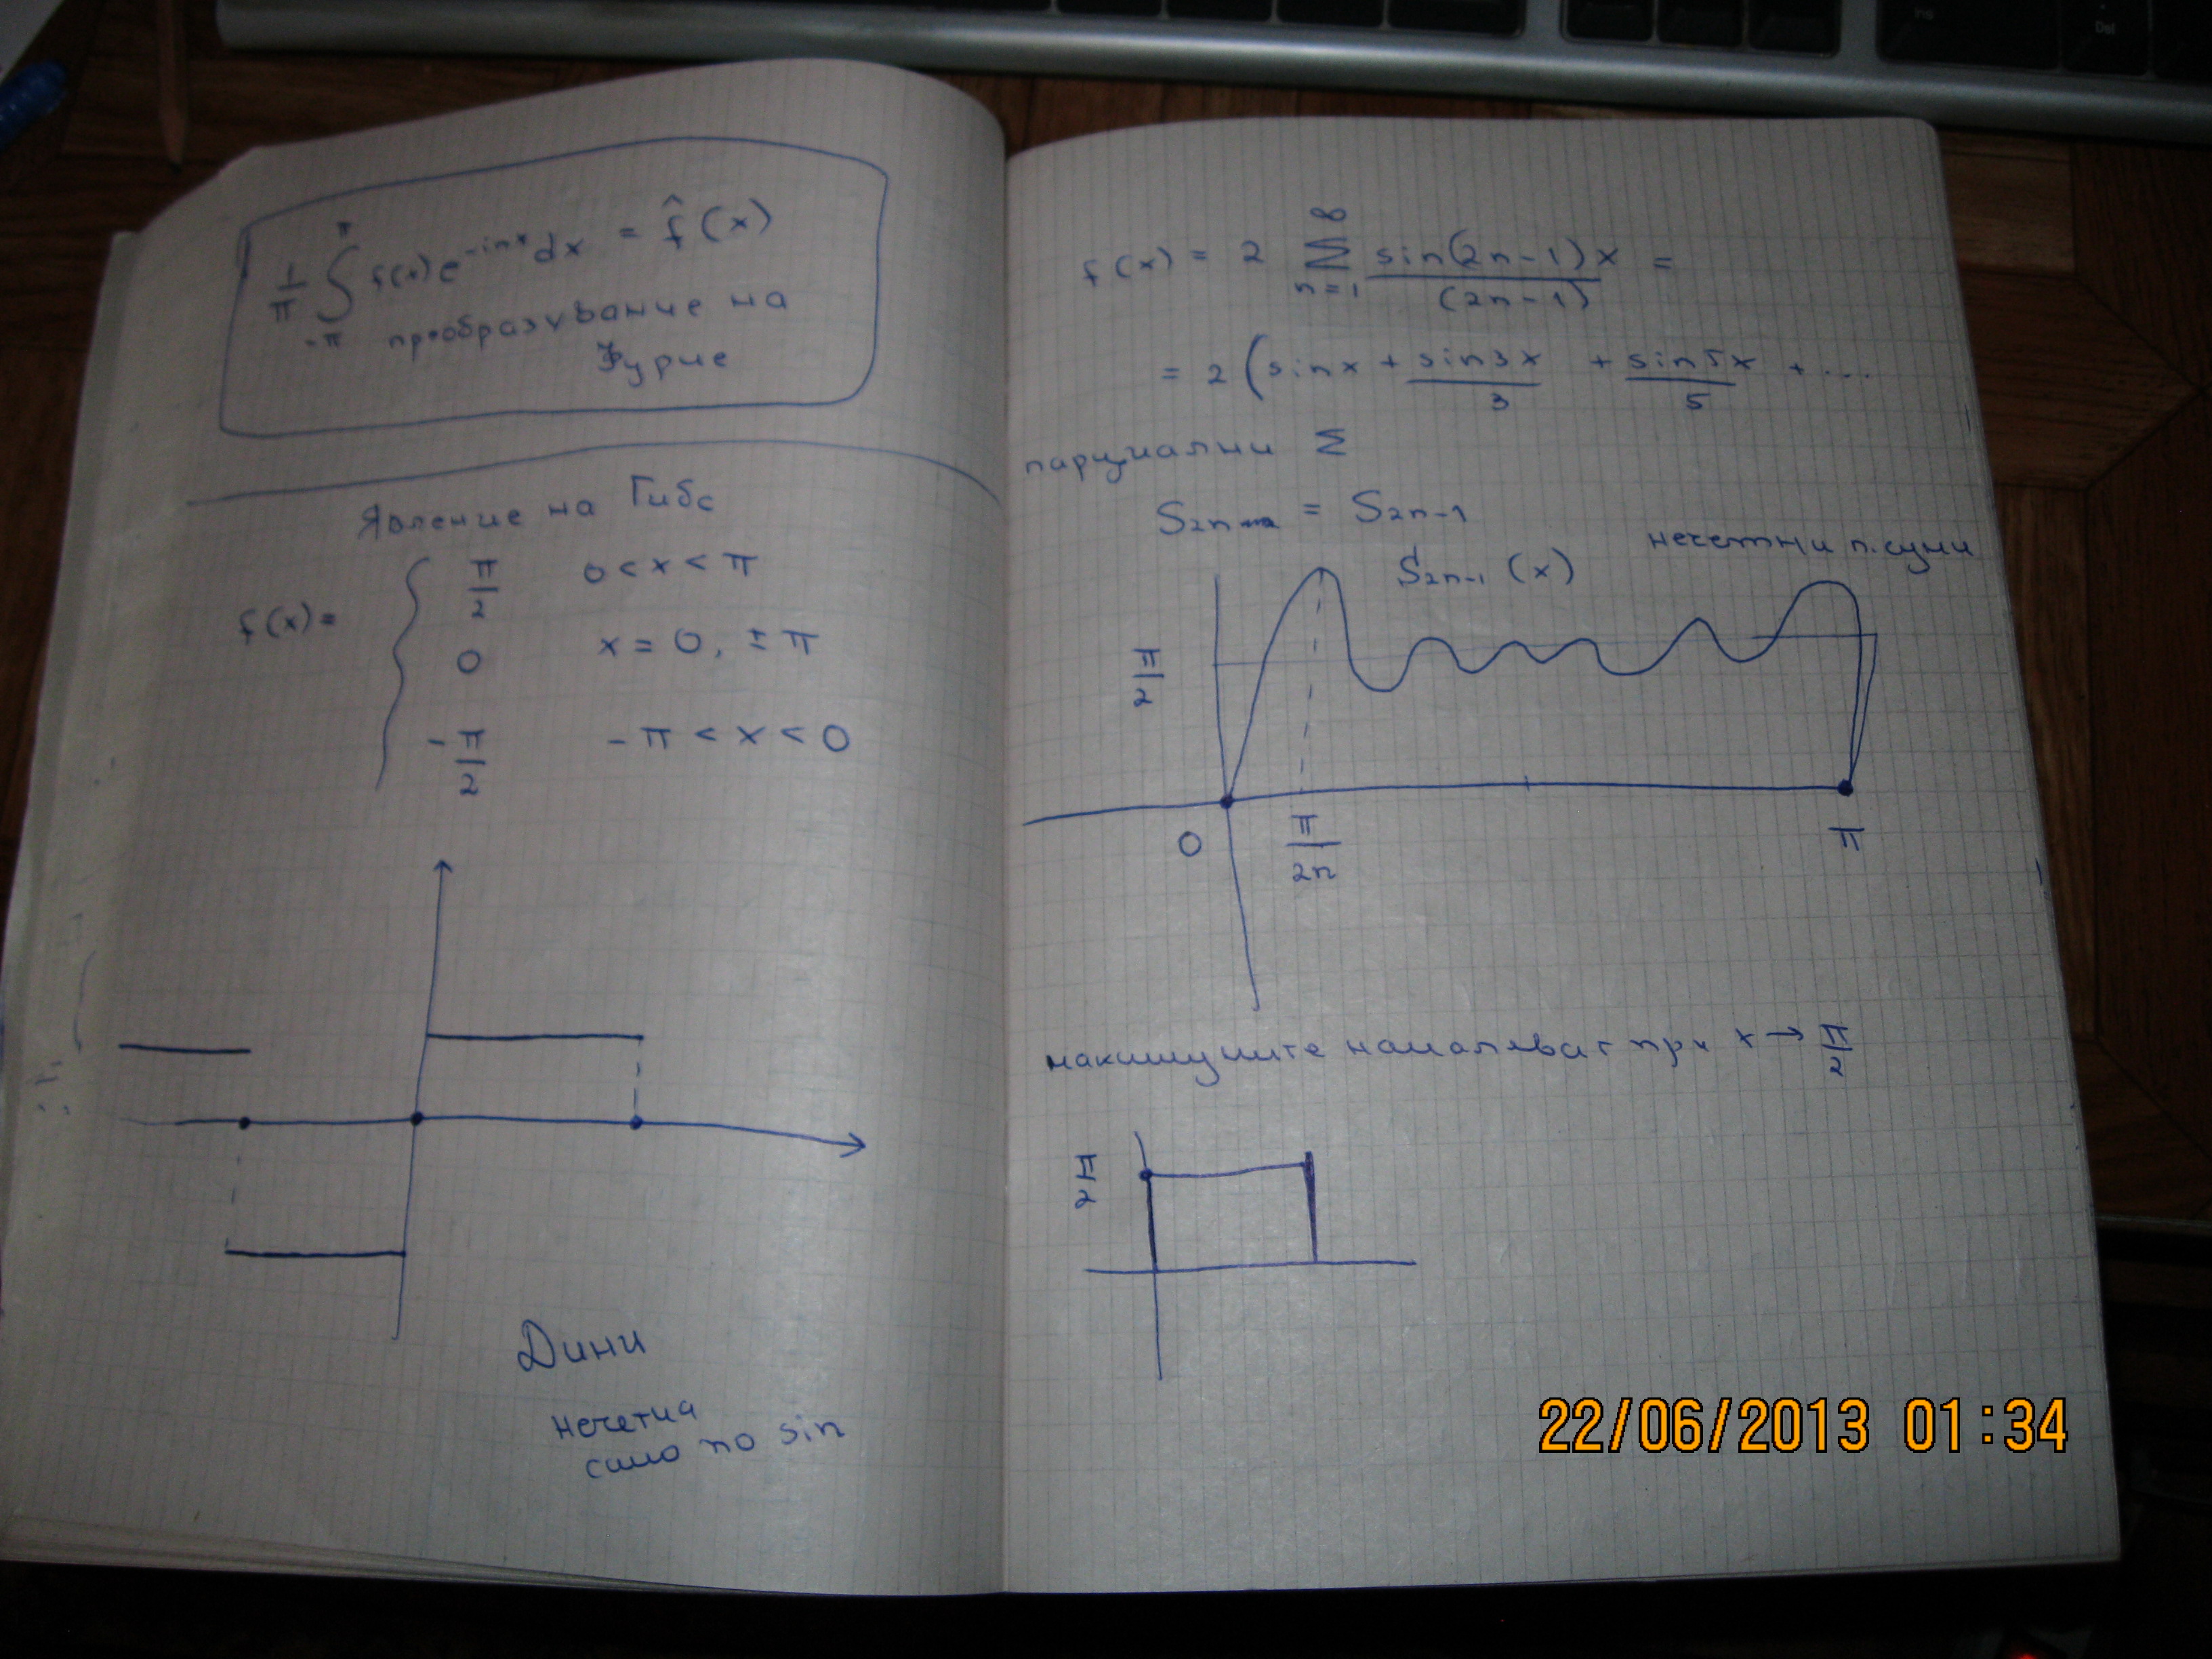 1/π ∫_{-π}^{π} f(x) e^{-inx} dx = f̂(x)
преобразуване на
Фурие
Явление на Гибс
f(x) = { π/2 0 < x < π
0 x = 0, ± π
- π/2 - π < x < 0
Дини
нечетна
само по sin
f(x) = 2 ∑_{n=1}^{∞} sin(2n-1)x / (2n-1) =
= 2 (sin x + sin3x/3 + sin5x/5 + ...
парциални Σ
S_{2n} = S_{2n-1}
нечетни п. суми
S_{2n-1} (x)
π/2
0 π/2n π
максимумите намаляват при x → π/2
π/2
22/06/2013 01:34
Ins
Del